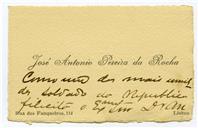 José Antonio Pereira da Rocha
Como um dos mais umil
des soldado da Republica
felicito o Exmo Snr Dr An
Rua dos Fanqueiros, 112 Lisboa